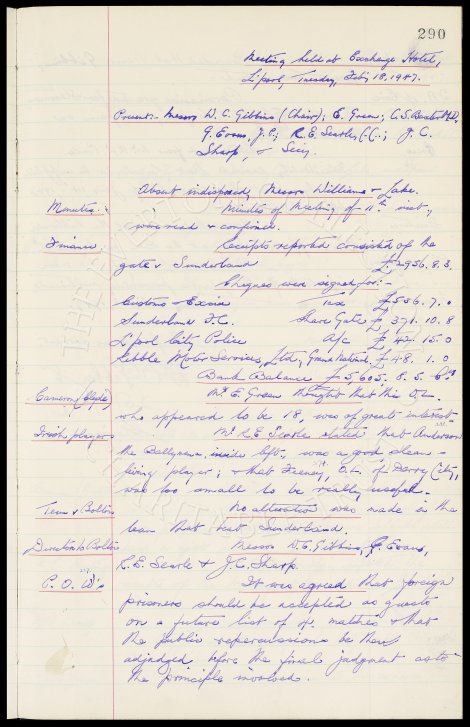 290
Meeting held at Exchange Hotel,
L'pool, Tuesday, Feb'y 18, 1947.
Present:- Messrs W. C. Gibbins (Chair); E. Green; C. S. Baxter M.B.;
G. Evans, J.P.; R. E. Searle, C.C.; J. C.
Sharp, & Secy.
About indisposed, Messrs Williams & Lake.
Minutes: Minutes of Meeting of 11th inst.,
were read & confirmed.
Finance: Receipts reported consisted of the
gate v Sunderland £2956. 8. 3.
Cheques were signed for:-
Customs & Excise Tax £556. 7. 0
Sunderland F.C. Share Gate £371. 10. 8
L'pool City Police A/c £42. 15. 0
Ribble Motor Services, Ltd., Grand National £48. 1. 0
Bank Balance £5,605. 8. 5.
Cameron (Clyde) Mr. E. Green thought that this O.L.
who appeared to be 18, was of great interest.
Irish players Mr. R. E. Searle stated that Anderson
the Ballymena inside left, was a good, clean-
living player; & that O.L. of Derry City,
was too small to be really useful.
Team v Bolton No alteration was made in the
team that beat Sunderland.
Directors to Bolton Messrs W. C. Gibbins, G. Evans,
R. E. Searle & J. C. Sharp.
P. O. W's It was agreed that foreign
prisoners should be accepted as guests
on a future list of matches & that
the public repercussions be then
adjudged, before the final judgment as to
the principle involved.